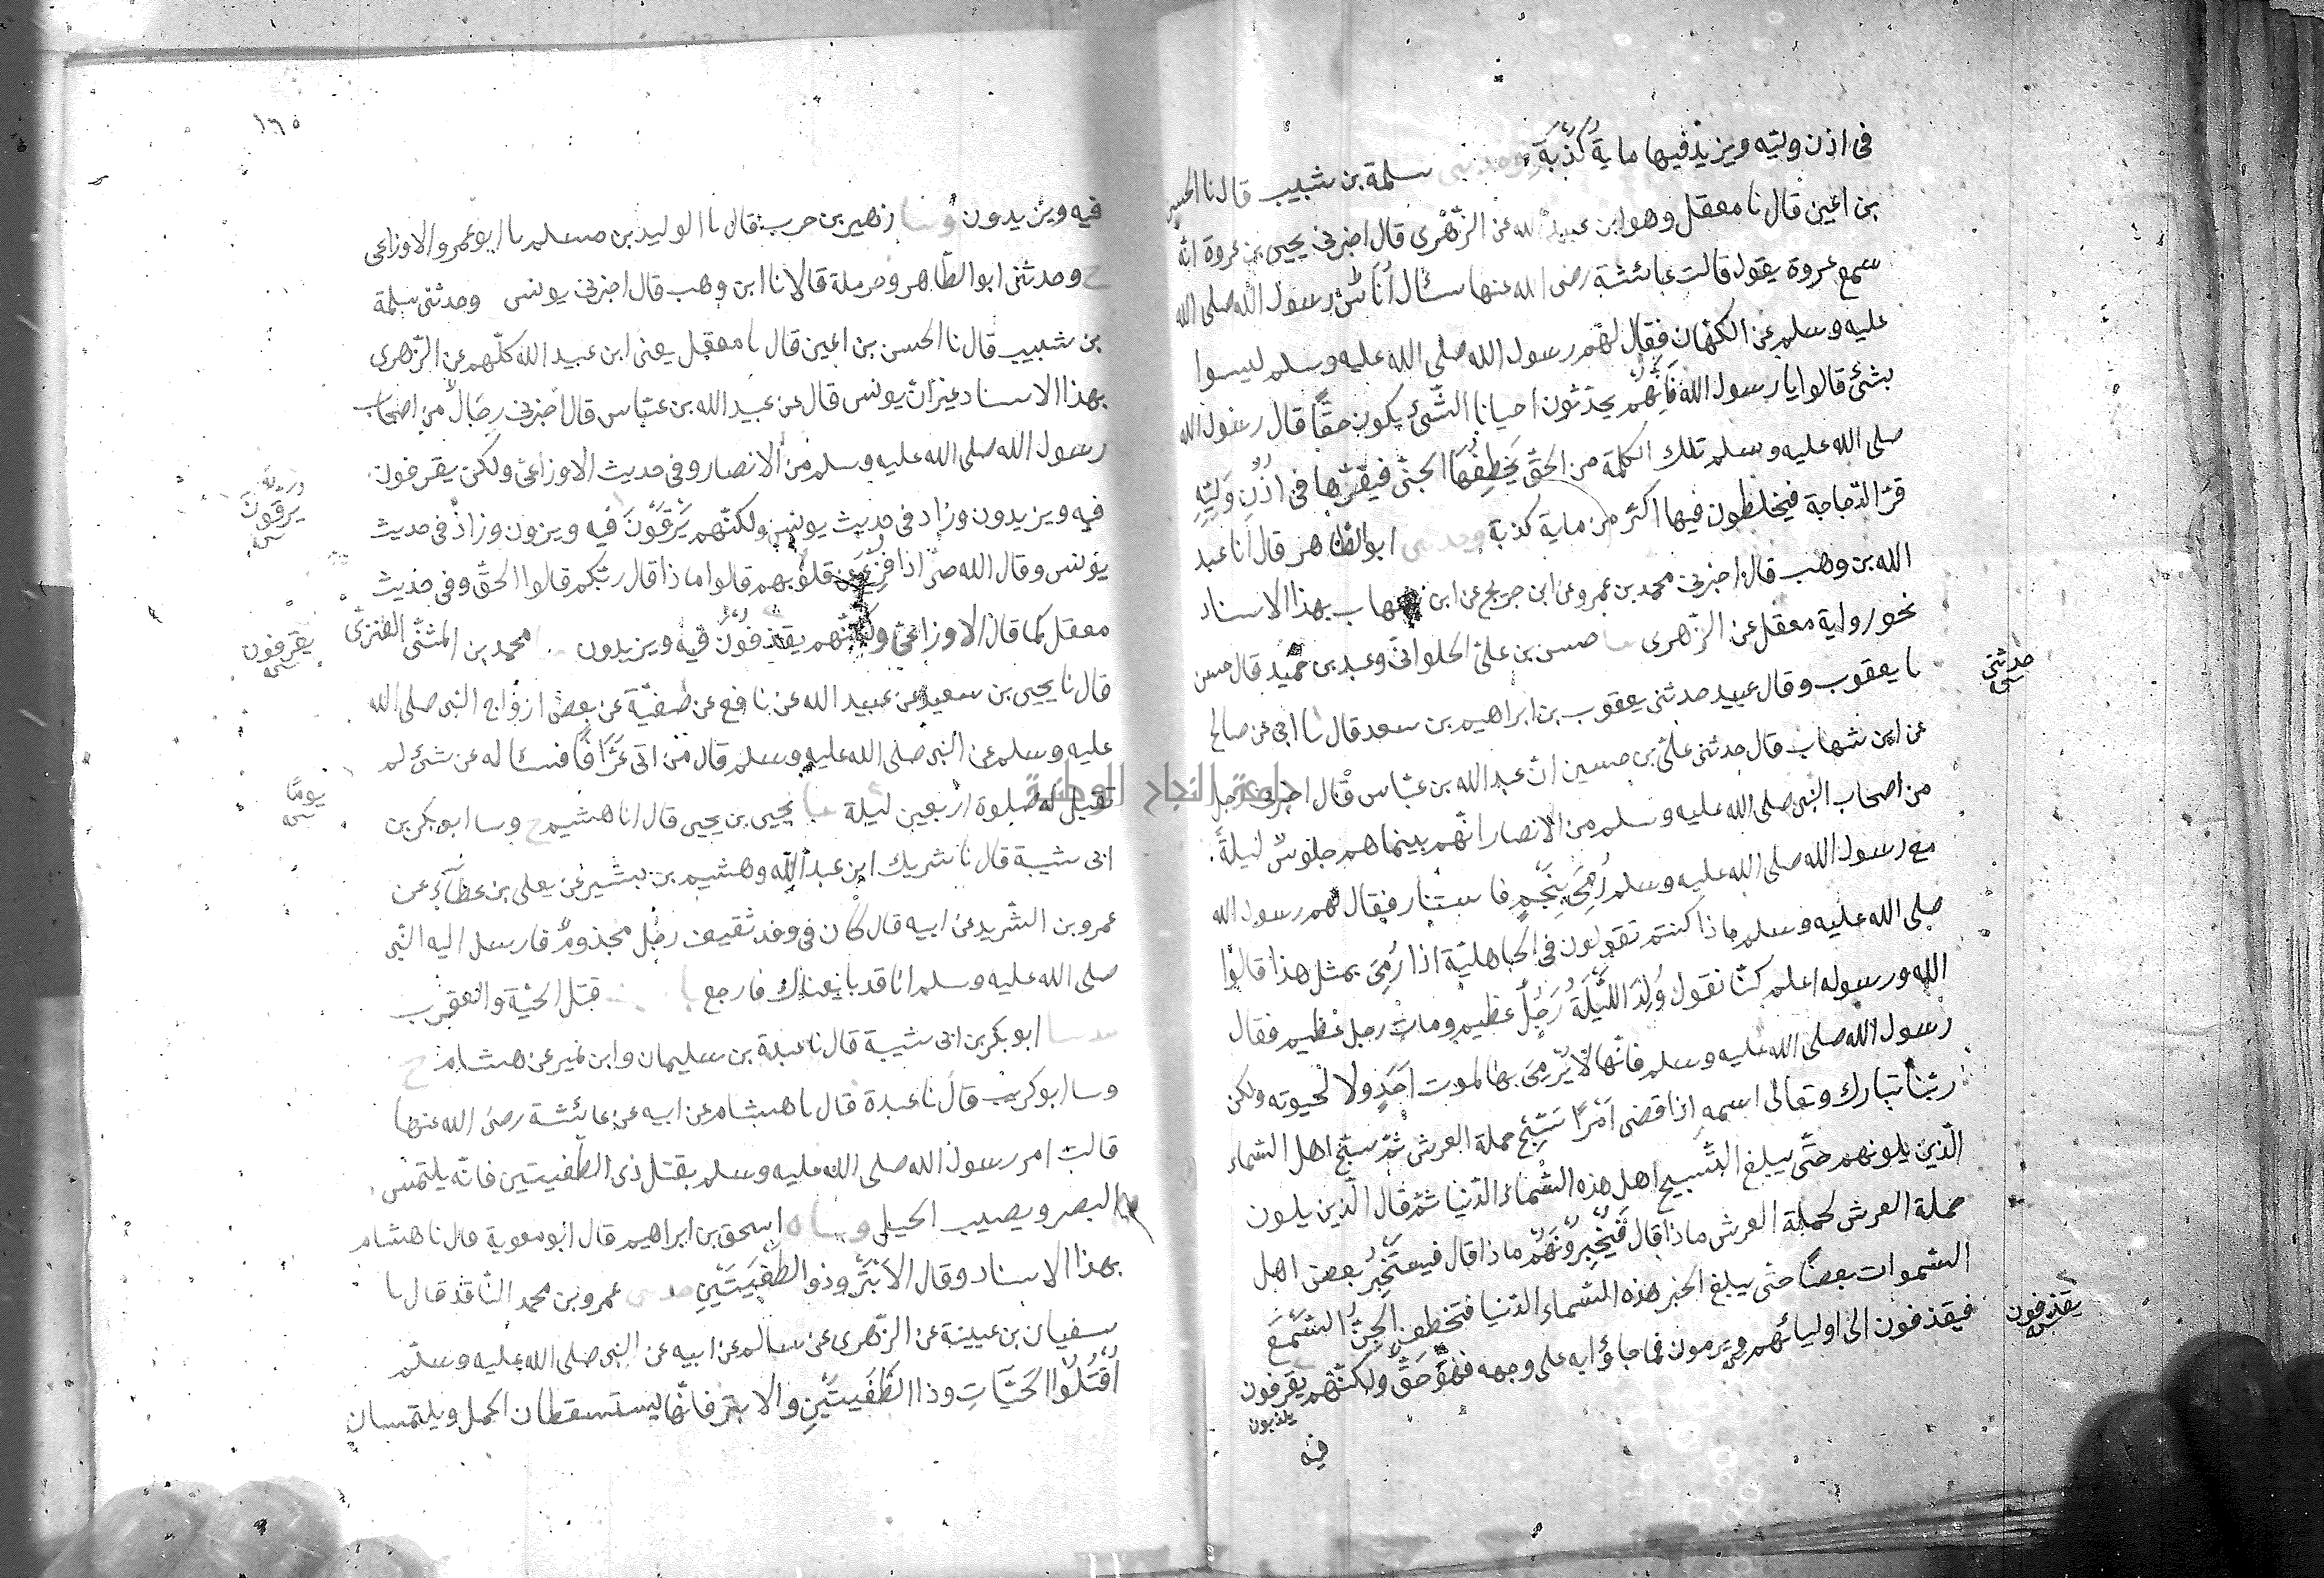 فى اذن وليه ويزيد فيها ماية كذبة وحدثنى سلمة بن شبيب قال نا الحسن
بن اعين قال نا معقل وهو ابن عبيد الله عن الزهرى قال اخبرنى يحيى بن عروة انه
سمع عروة يقول قالت عائشة رضى الله عنها سئال أناس رسول الله صلى الله
عليه وسلم عن الكهان فقال لهم رسول الله صلى الله عليه وسلم ليسوا
بشئ قالوا يا رسول الله فانهم يحدثون احيانا الشئ يكون حقا قال رسول الله
صلى الله عليه وسلم تلك الكلمة من الحق يخطفها الجنى فيقرها فى اذن وليه
قر الدجاجة فيخلطون فيها اكثر من ماية كذبة وحدثنى ابو الطاهر قال انا عبد
الله بن وهب قال اخبرنى محمد بن عمرو عن ابن جريج عن ابن شهاب بهذا الاسناد
نحو رواية معقل عن الزهرى حسن بن على الحلوانى وعبد بن حميد قال حسن
نا يعقوب وقال عبيد حدثنى يعقوب بن ابراهيم بن سعد قال نا ابى عن صالح
حدثنى
عن ابن شهاب قال حدثنى على بن حسين ان عبد الله بن عباس قال اخبرنى رجل
من اصحاب النبى صلى الله عليه وسلم من الانصار انهم بينما هم جلوس ليلة
مع رسول الله صلى الله عليه وسلم رمى بنجم فاستنار فقال لهم رسول الله
صلى الله عليه وسلم ماذا كنتم تقولون فى الجاهلية اذا رمى بمثل هذا قالوا
الله ورسوله اعلم كنا نقول ولد الليلة رجل عظيم ومات رجل عظيم فقال
رسول الله صلى الله عليه وسلم فانها لا يرمى بها لموت احد ولا لحيوته ولكن
ربنا تبارك وتعالى اسمه اذا قضى امرا سبح حملة العرش ثم سبح اهل السماء
الذين يلونهم حتى يبلغ التسبيح اهل هذه السماء الدنيا ثم قال الذين يلون
حملة العرش لحملة العرش ماذا قال فيخبرونهم ماذا قال فيستخبر بعض اهل
السموات بعضا حتى يبلغ الخبر هذه السماء الدنيا فتخطف الجن السمع
فيقذفون الى اوليائهم ويرمون فما جاؤا به على وجهه فهو حق ولكنهم يقرفون
يقذفون
فيه
١٦٥
فيه ويزيدون زهير بن حرب قال نا الوليد بن مسلم نا ابو عمرو الاوزاعى
ح وحدثنى ابو الطاهر وحرملة قالا نا ابن وهب قال اخبرنى يونس وحدثنى سلمة
بن شبيب قال نا الحسن بن اعين قال نا معقل يعنى ابن عبيد الله كلهم عن الزهرى
بهذا الاسناد غير ان يونس قال عن عبد الله بن عباس قال اخبرنى رجال من اصحاب
رسول الله صلى الله عليه وسلم من الانصار وفى حديث الاوزاعى ولكن يقرفون
فيه ويزيدون وزاد فى حديث يونس ولكنهم يرقون فيه ويزون وزاد فى حديث
يرقون
يونس وقال الله حتى اذا فزع عن قلوبهم قالوا ماذا قال ربكم قالوا الحق وفى حديث
معقل كما قال الاوزاعى ولكنهم يقذفون فيه ويزيدون محمد بن المثنى العنزى
يقرفون
قال نا يحيى بن سعيد عن عبيد الله عن نافع عن صفية عن بعض ازواج النبى صلى الله
عليه وسلم عن النبى صلى الله عليه وسلم قال من اتى عرافا فسئاله عن شئ لم
تقبل له صلوة اربعين ليلة يحيى بن يحيى قال انا هشيم ح وسا ابو بكر بن
يوما
ابى شيبة قال نا شريك ابن عبد الله وهشيم بن بشير عن يعلى بن عطاء عن
عمرو بن الشريد عن ابيه قال كان فى وفد ثقيف رجل مجذوم فارسل اليه النبى
صلى الله عليه وسلم انا قد بايعناك فارجع قتل الحية والعقرب
ابو بكر بن ابى شيبة قال نا عبدة بن سليمان وابن نمير عن هشام ح
وسا ابو كريب قال نا عبدة قال نا هشام عن ابيه عن عائشة رضى الله عنها
قالت امر رسول الله صلى الله عليه وسلم بقتل ذى الطفيتين فانه يلتمس
البصر ويصيب الحبل وسا ه اسحق بن ابراهيم قال ابو معوية قال نا هشام
بهذا الاسناد وقال الابتر وذو الطفيتين عمرو بن محمد الناقد قال نا
سفيان بن عيينة عن الزهرى عن سالم عن ابيه عن النبى صلى الله عليه وسلم
اقتلوا الحيات وذا الطفيتين والابتر فانهما يستسقطان الحمل ويلتمسان
جامعة النجاح الوطنية